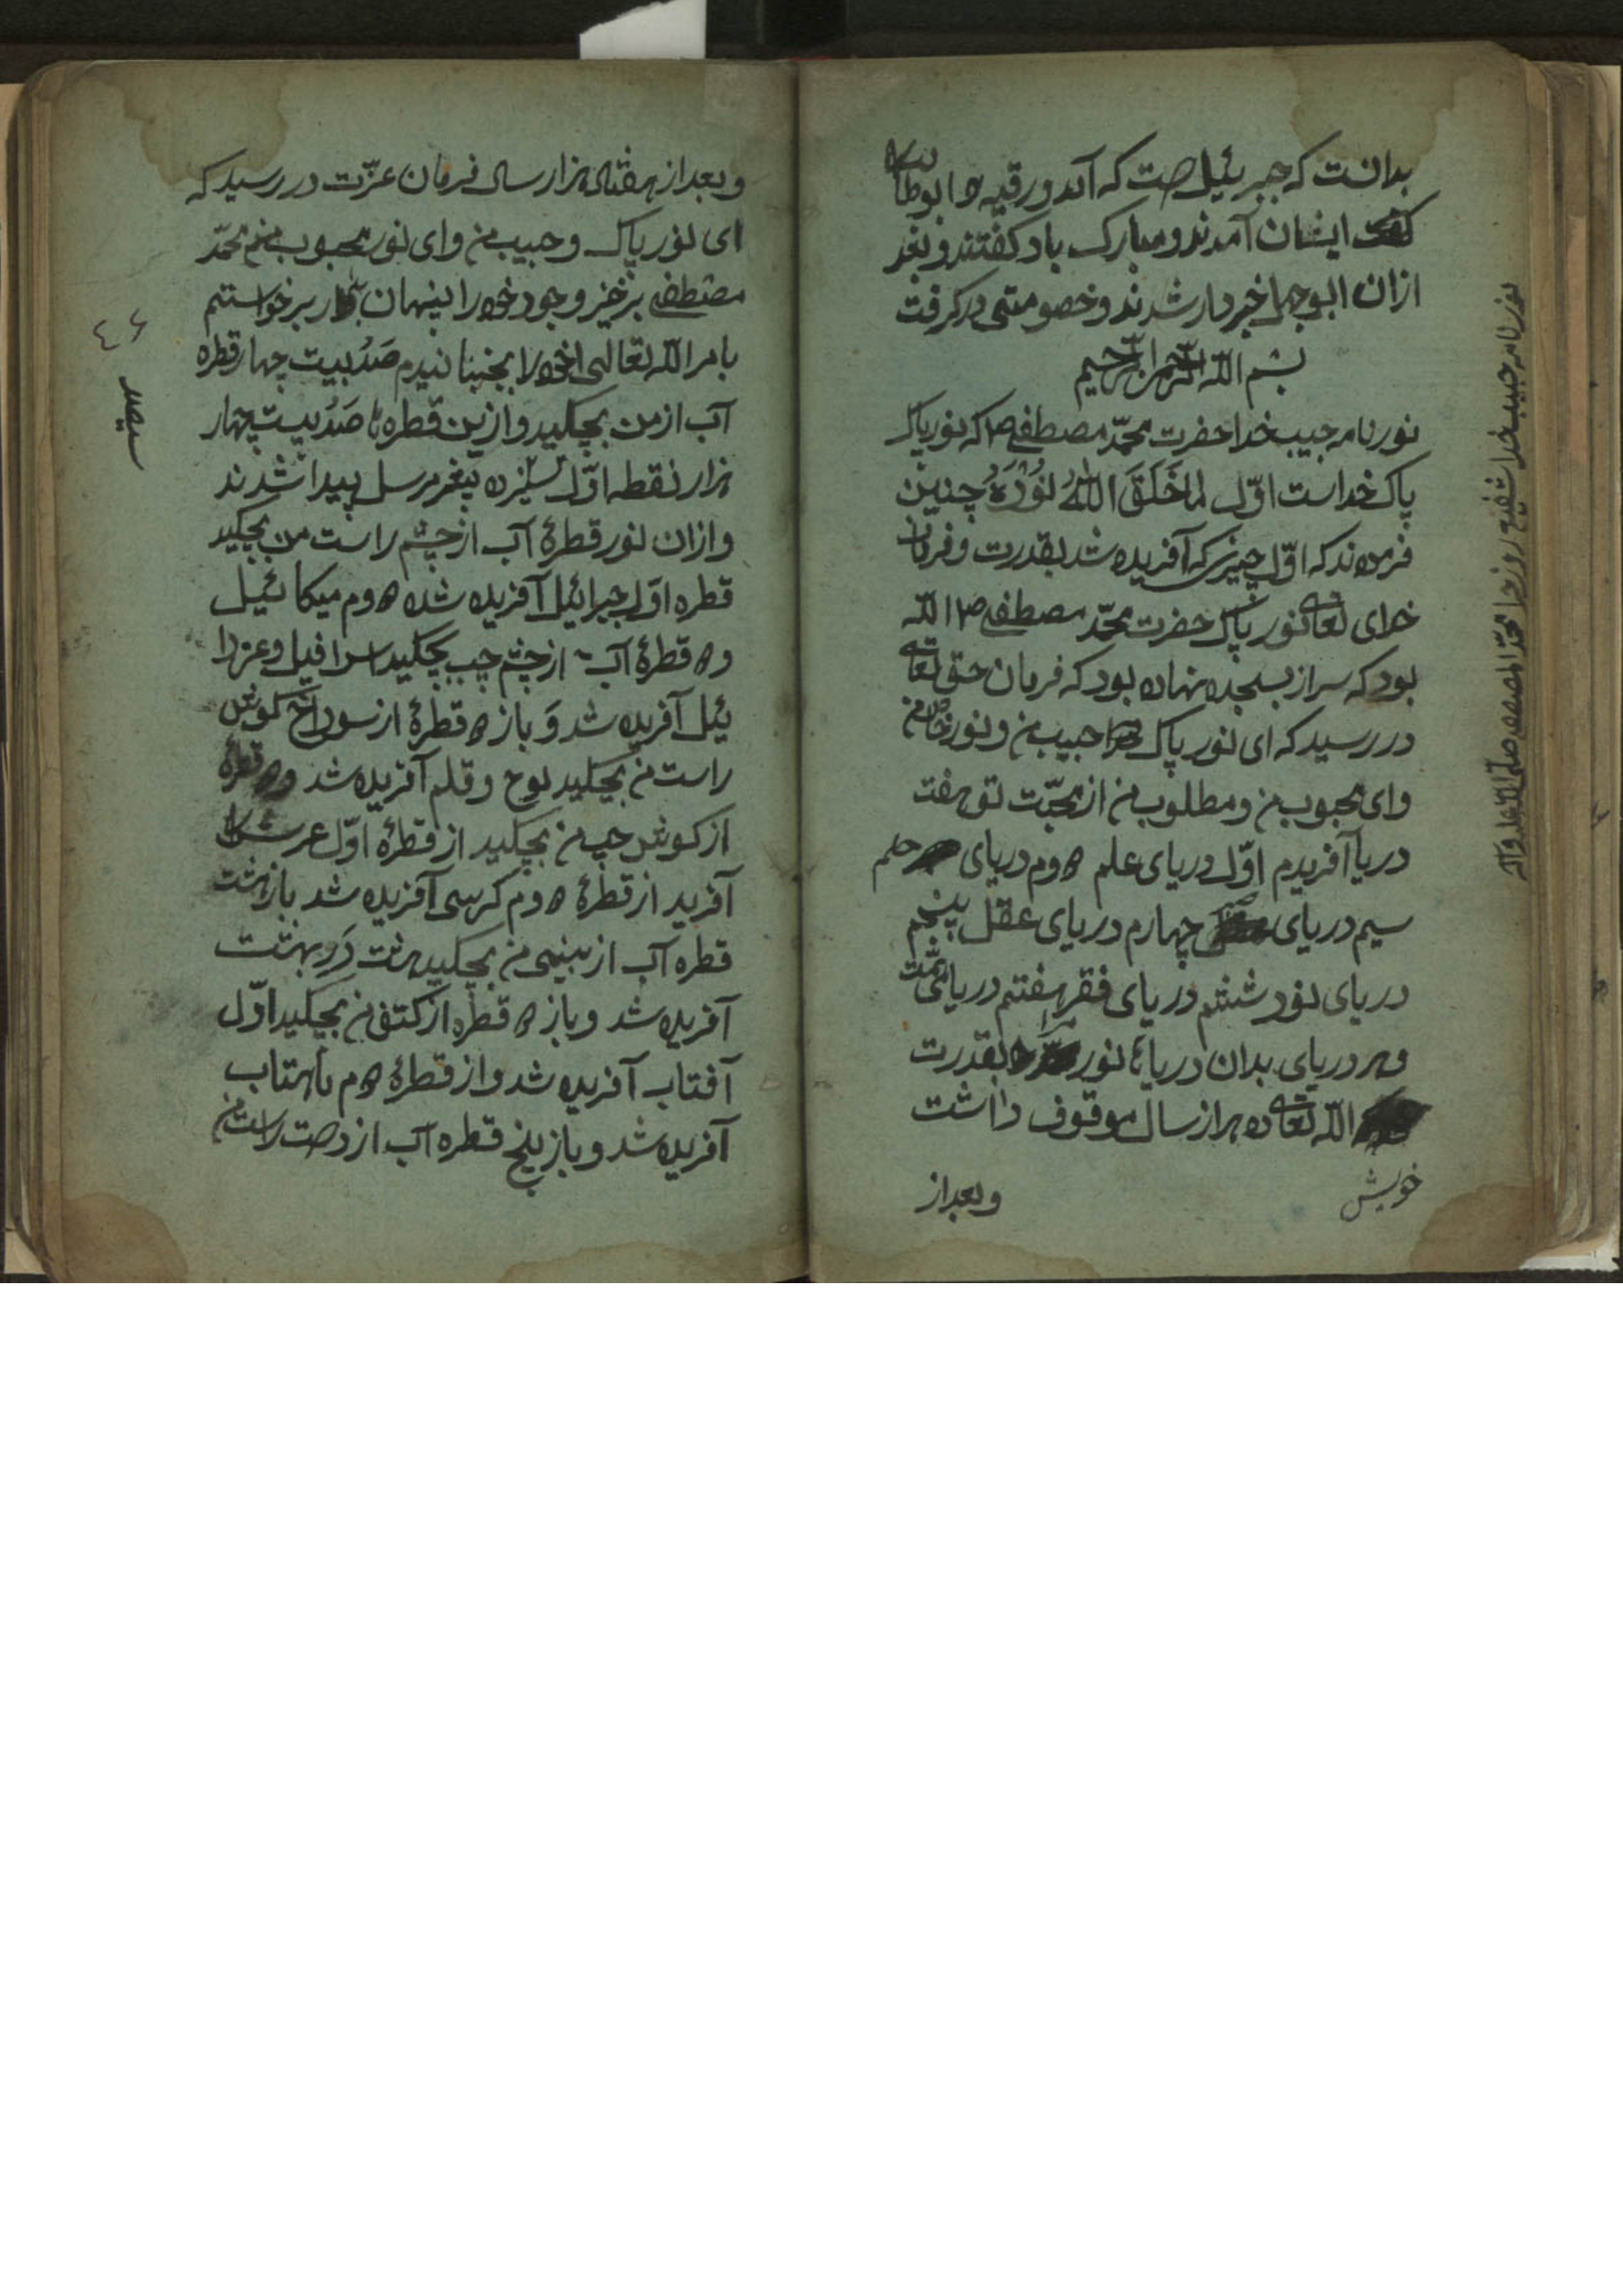 بدانست که جبرئیل است که آمد و رقیه و ابوطالب
ایشان آمدند و مبارک باد کفتند و بعد
ازان ابوجهل خبردار شدند و خصومتی در کرفت
بسم الله الرحمن الرحیم
نور نامه حبیب خدا حضرت محمّد مصطفی ص که نور پاک
پاک خداست اوّل لما خَلَقَ اللهُ نُوْرُهُ چنین
فرمودند که اوّل چیزی که آفریده شد بقدرت و فرمان
خدای تعالی نور پاک حضرت محمّد مصطفی ص الله
بود که سر از بسجده نهاده بود که فرمان حق تعالی
در رسید که ای نور پاک حبیب من و نور خاص من
وای محبوب من و مطلوب من از محبّت تو هفت
دریا آفریدم اوّل دریای علم دوم دریای حلم
سیم دریای چهارم دریای عقل پنجم
دریای نور ششم دریای فقر هفتم دریای
و هر دریای بدان دریاها نور بقدرت
الله تعالی ده هزار سال موقوف داشت
خویش
و بعد از
نور نامه حبیب خدا شفیع روز جزا محمّد المصطفی صلی الله علیه وآله
و بعد از هفتاد هزار سال فرمان عزّت در رسید که
ای نور پاک و حبیب من و ای نور محبوب منم محمّد
مصطفی برخیز و جود خود را پنهان بدار برخواستم
بامر الله تعالی خود را بجنبانیدم صَدُ بیست چهار قطره
آب از من بچکید و ازین قطره ها صَدُ بیست چهار
هزار نقطه اوّل سیزده پیغمر مرسل پیدا شدند
و ازان نور قطرۀ آب از چشم راست من بچکید
قطره اوّل جبرائیل آفریده شده دوم میکائیل
و دو قطرۀ آب از چشم چب بچکید اسرافیل و عزرا
ئیل آفریده شد وَ باز دو قطرۀ از سوراخ کوش
راست من بچکید لوح و قلم آفریده شد و دو قطرۀ
از کوش چپ من بچکید از قطرۀ اوّل عرش
آفرید از قطرۀ دوم کرسی آفریده شد باز هشت
قطره آب از بینی من بچکید هشت دَرِ بهشت
آفریده شد و باز دو قطره از کتف من بچکید اوّل
آفتاب آفریده شد و از قطرۀ دوم ماهتاب
آفریده شد و باز پنج قطره آب از دست راست من
٤٦
سیصد